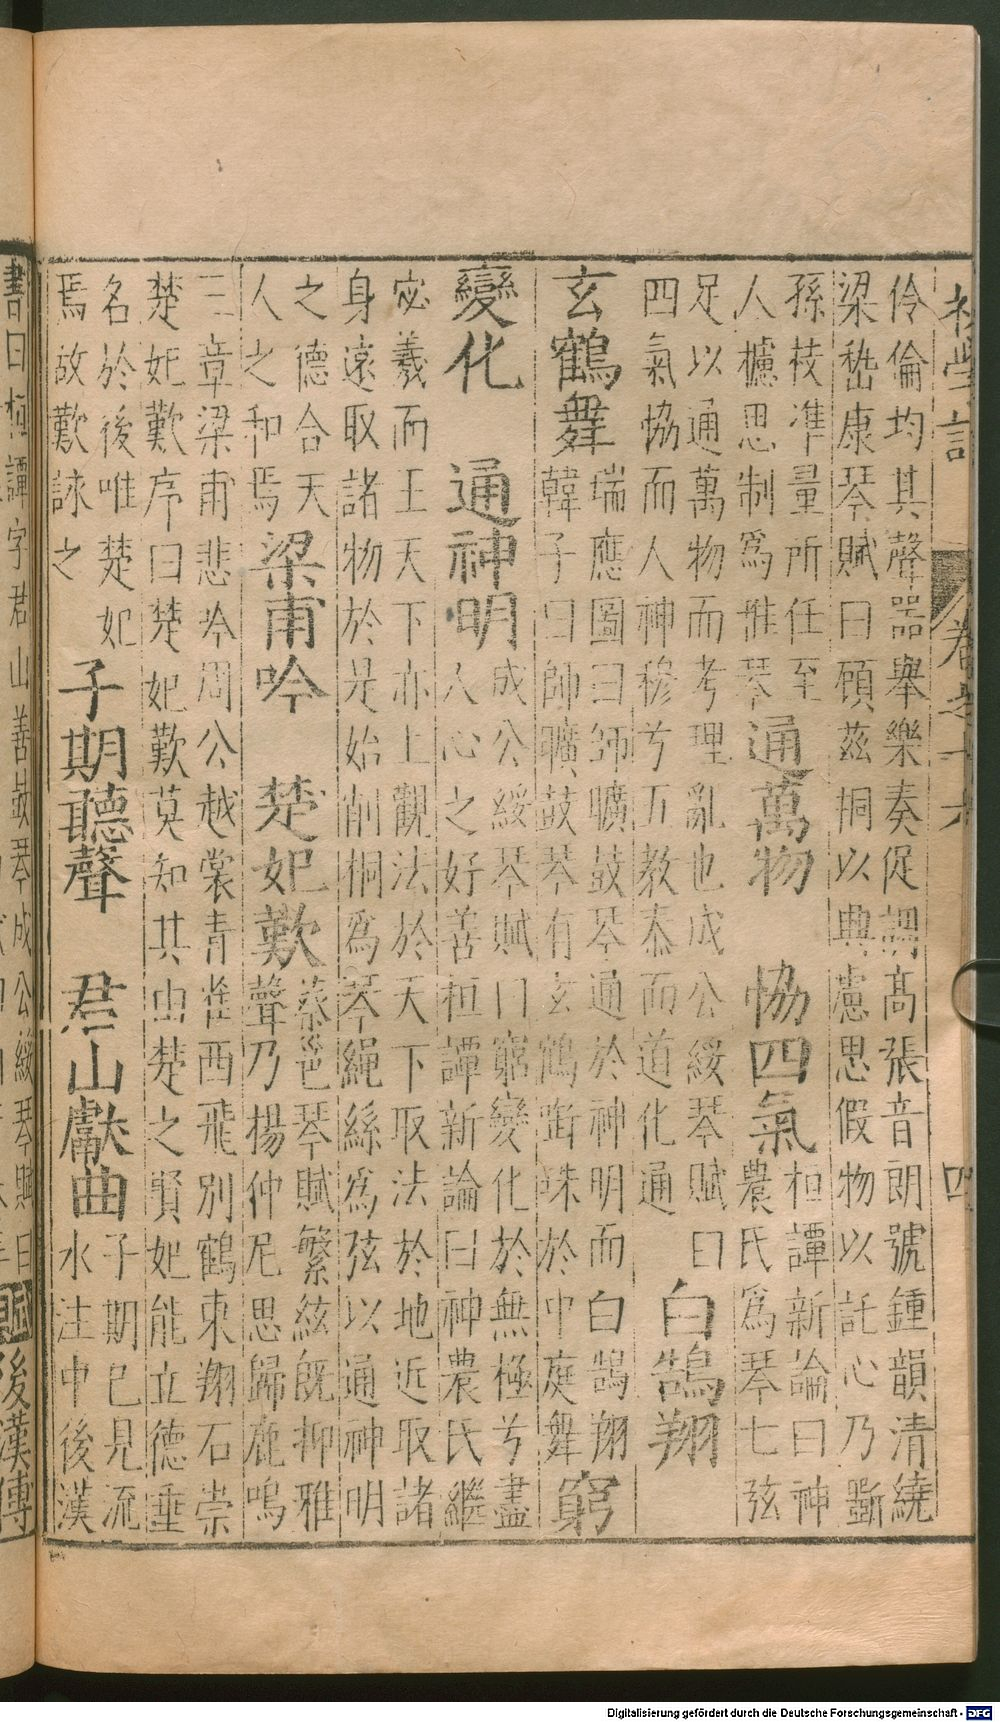 伶倫均其聲器舉樂奏促調高張音朗號鍾韻清繞
梁嵆康琴賦曰顧茲桐以典慮思假物以託心乃斵
孫枝准量所任至
人攄思制為雅琴
通萬物
協四氣
桓譚新論曰神
農氏為琴七弦
足以通萬物而考理亂也成公綏琴賦曰
四氣協而人神穆兮五教泰而道化通
白鵠翔
玄鶴舞
瑞應圖曰師曠鼓琴通於神明而白鵠翔
韓子曰師曠鼓琴有玄鶴銜珠於中庭舞
窮
變化
通神明
成公綏琴賦曰窮變化於無極兮盡
人心之好善桓譚新論曰神農氏繼
宓羲而王天下亦上觀法於天下取法於地近取諸
身遠取諸物於是始削桐為琴繩絲為弦以通神明
之德合天
人之和焉
梁甫吟
楚妃歎
蔡邕琴賦繁絃既抑雅
聲乃揚仲尼思歸鹿鳴
三章梁甫悲吟周公越裳青雀西飛別鶴東翔石崇
楚妃歎序曰楚妃歎莫知其由楚之賢妃能立德垂
名於後唯楚妃
焉故歎詠之
子期聽聲
君山獻曲
子期已見流
水注中後漢
書曰桓譚字君山善鼓琴成公綏琴賦曰
賦
後漢傅
卷之十六
四